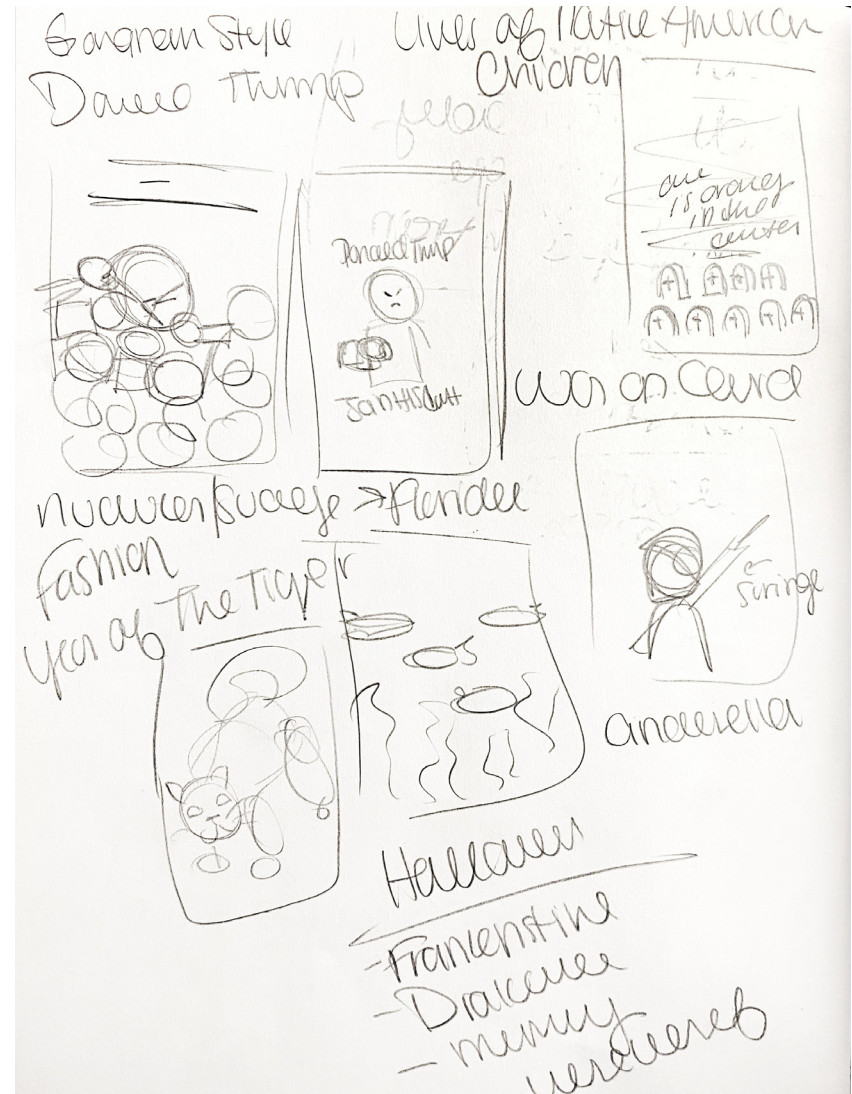 Gangnam Style
Donald Trump
Lives of Native American
Children
one
is orange
in the
center
Donald Trump
Join His Cult
War on Covid
Fashion
Year of The Tiger
Siringe
Cinderella
Halloween
- Frankenstine
- Draculla
- mummy